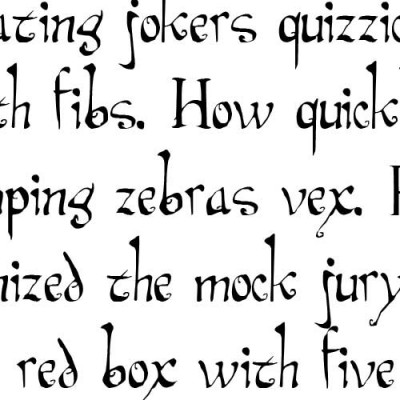 ating jokers quizzic
th fibs. How quick
ping zebras vex.
nized the mock jury
red box with five